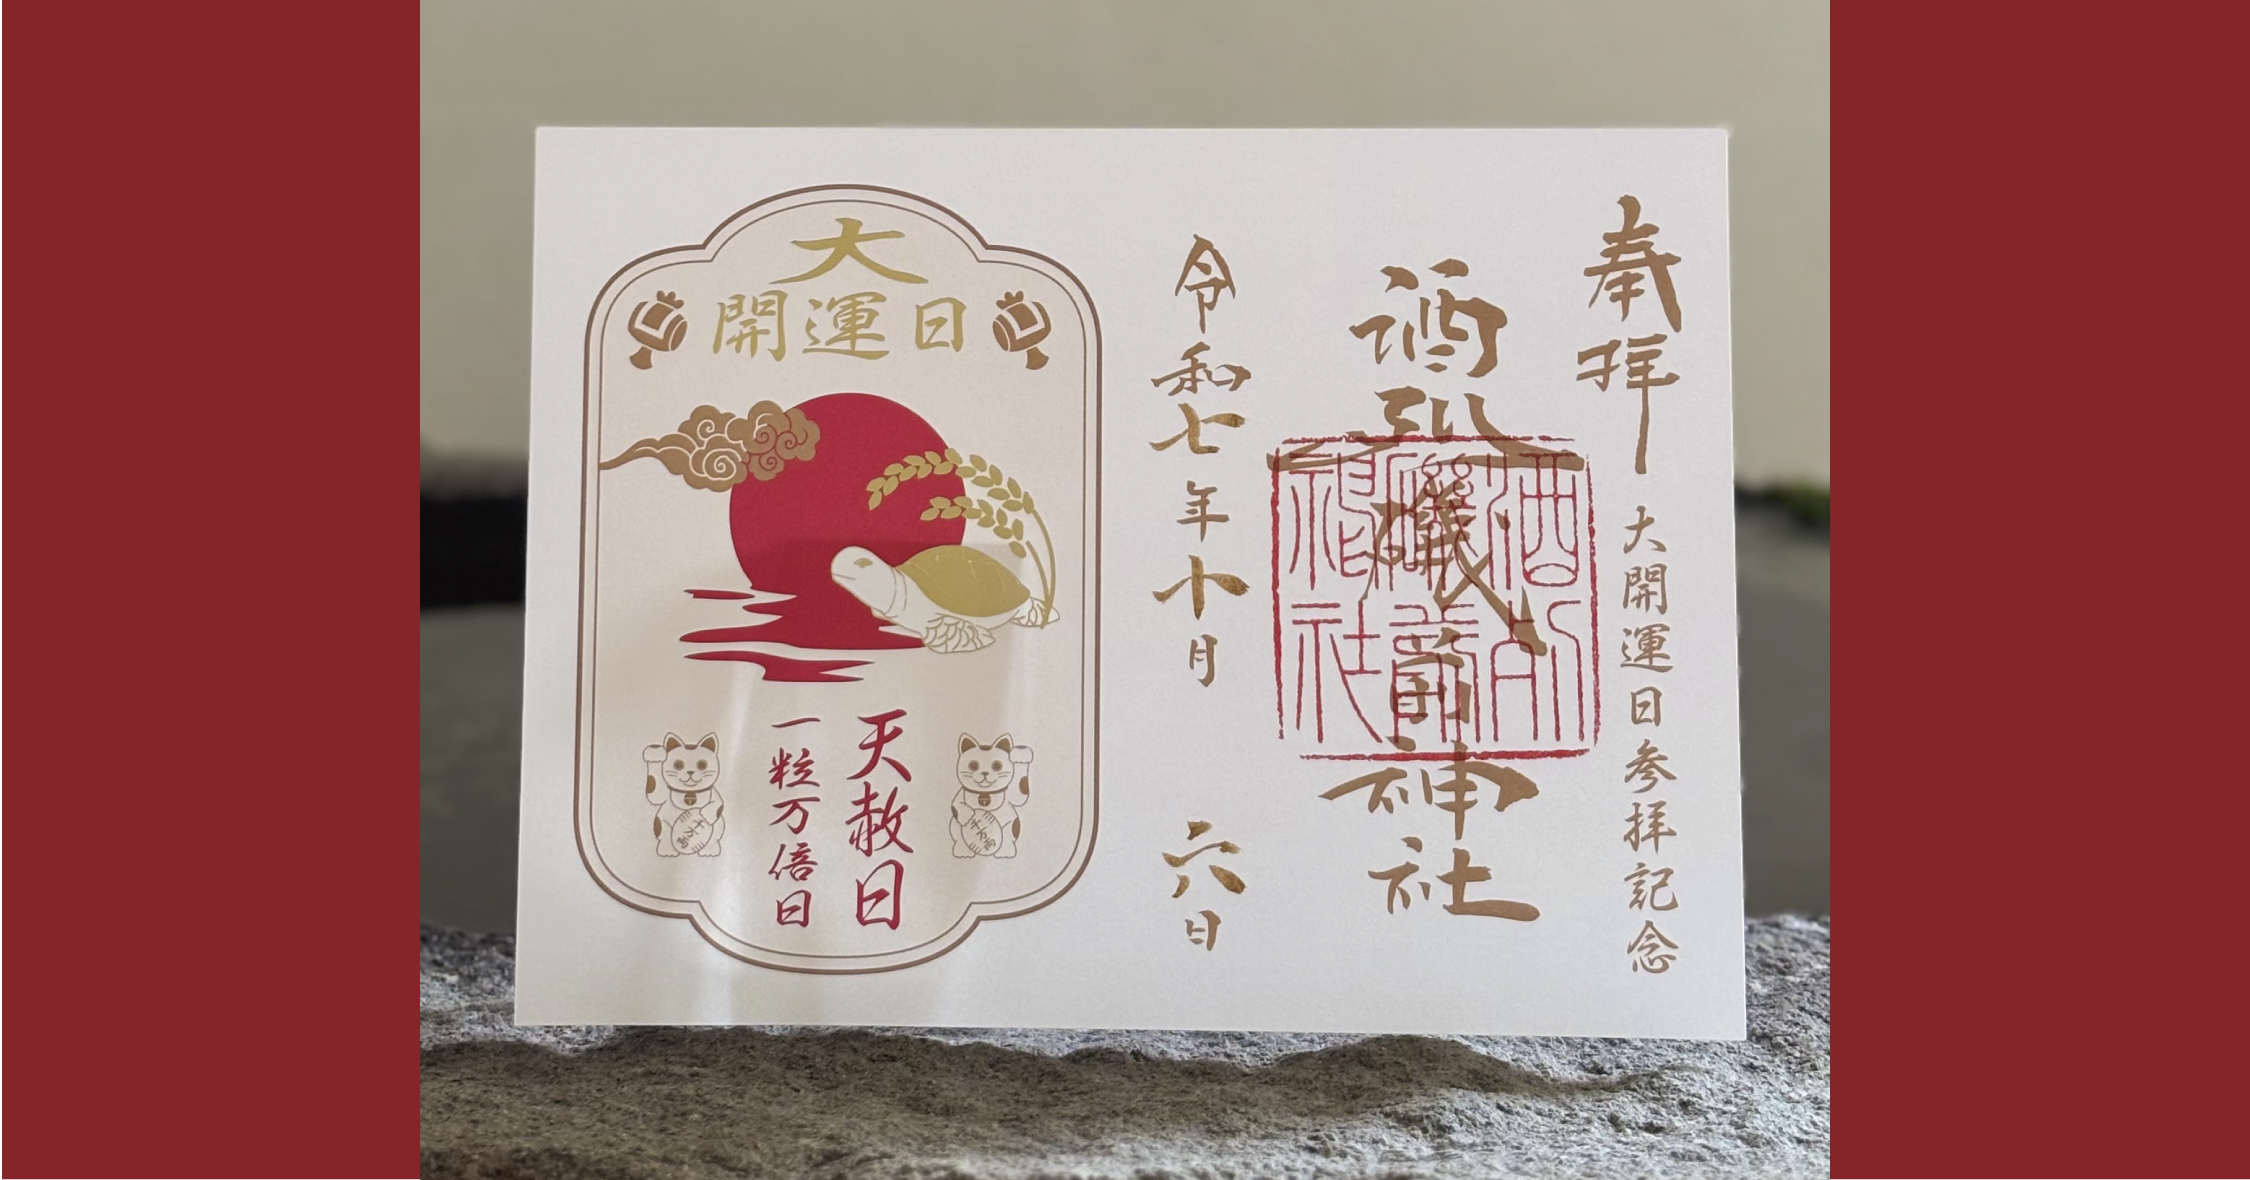 奉拝
大開運日参拝記念
酒列磯前神社
酒列
磯前
神社
令和七年十月六日
大
開運日
天赦日
一粒万倍日
千万両
千万両